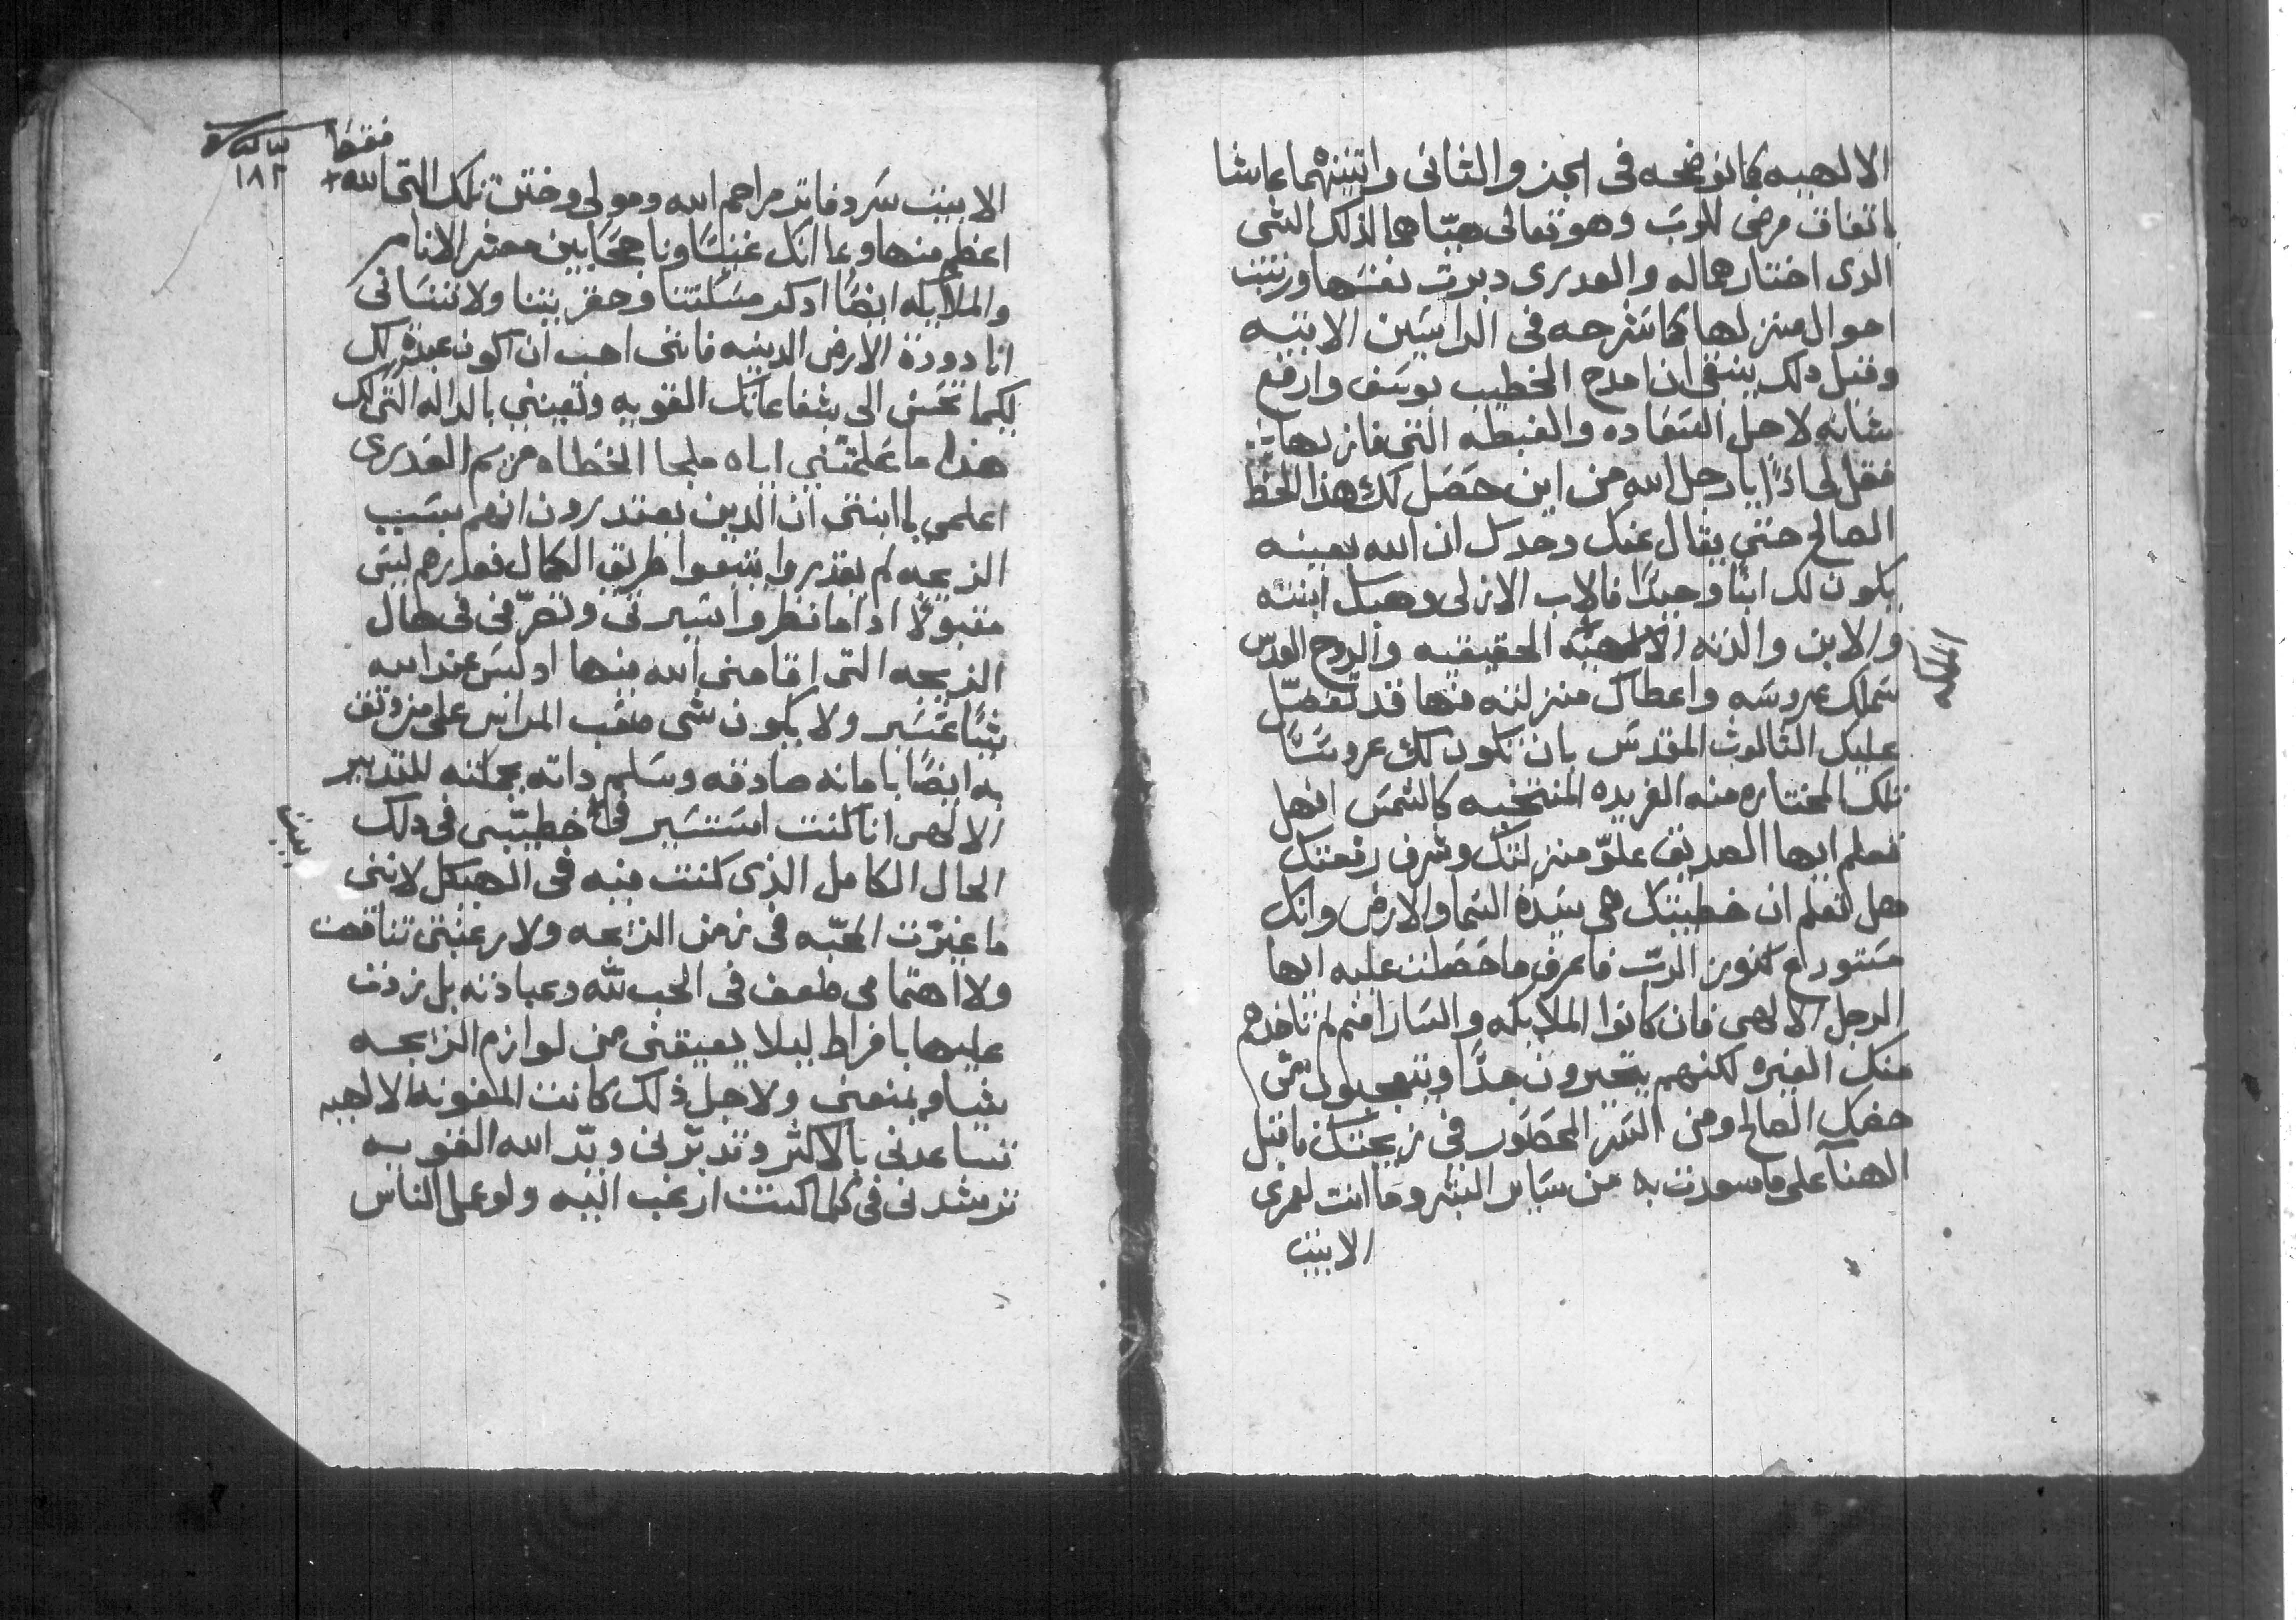 الالهيه كما نوضحه فى الجزو الثانى واتنينهما عاشا
باتفاق مرضى للرب وهو تعالى هيّاهما لذلك الشى
الدى اختارهما له والعدرى دبرت نفسها ورتبت
احوال منزلها كما نشرحه فى الدراستين الاتيه
وقبل دلك ينبغى ان امدح الخطيب يوسف وارفع
شانه لاجل السعاده والغبطه التى فاز بها
فقل لى اذًا يا رجل الله من اين حصَل لك هذا الحظ
الصالح حتى يقال عنك وحدك ان الله بعينه
يكون لك ابنًا وحيدًا فالاب الازلى وهبك ابنته
والابن والدته الالهيّه الحقيقيه والروح القدس
سَملك عروسَه واعطاك منزلته فيها قد تفضّل
عليك التالوت المقدس بان تكون لك عروسًا
تلك المختاره منه الفريده المنتخبه كالشمس افهل
تعلم ايها الصديق علوّ منزلتك وشرف رفعتك
هل تعلم ان خطيبتك هى سَيدة السَما والارض وانك
مَستودع كنوز الربّ فاعرف ما حصَلت عليه ايها
الرجل الالهى فان كانوا الملايكه والسَارافيم لم تاخدهم
منك الغيره لكنهم يتحيرون جدًّا ويتعجبون من
حضك الصالح ومن السَر المحصَور فى زيجتك فاقبل
الهنا على ما سعدت به من سَاير البشر وما انت لعمرى
الابيت
ففقط
١٨٢
الابيت سَرد فايد مراحم الله ومولى وختن تلك التى الله
اعظم منها وبما انك غنيًا وناجحًا بين معشر الانام
والملايكه ايضًا ادكر مسَكنتنا وحقريتنا ولا تنسَانى
انا دودة الارض الدنيه فانى احب ان اكون عبدة لك
لكيما تحسَن الى بشفاعاتك القويه وتعيننى بالداله التى لك
هذا ما علمتنى اياه ملجا الخطاه مريم العدرى
اعلمى يا ابنتى ان الدين يعتدرون انهم بسَبب
الزيجه لم يقدروا يتبعوا طريق الكمال فعدرهم ليسَ
مقبولًا اداما نظروا سيرتى وتصرّفى فى حال
الزيجه التى اقامنى الله فيها اد ليسَ عند الله
شيًا عسَير ولا يكون شى صعب المراس على من وتق
به ايضًا بامانه صادقه وسَلم داته بجملته للتدبير
الالهى انا كنت استسَير فى خطيبى فى دلك
الحال الكامل الذى كنت فيه فى الهيكل لاننى
ما غيّرت المحبّه فى زمن الزيجه ولا رغبتى تناقصت
ولا اهتمامى ضعف فى الحب للّه وعبادته بل زدت
عليها بافراط ليلا يعيقنى من لوازم الزيجه
شيا ويمنعنى ولاجل ذلك كانت المعونه الالهيه
تساعدنى بالاكثر وتدبّرنى ويدّ الله القويه
ترشدنى فى كلما كنت ارغب اليه ولو عمل الناس